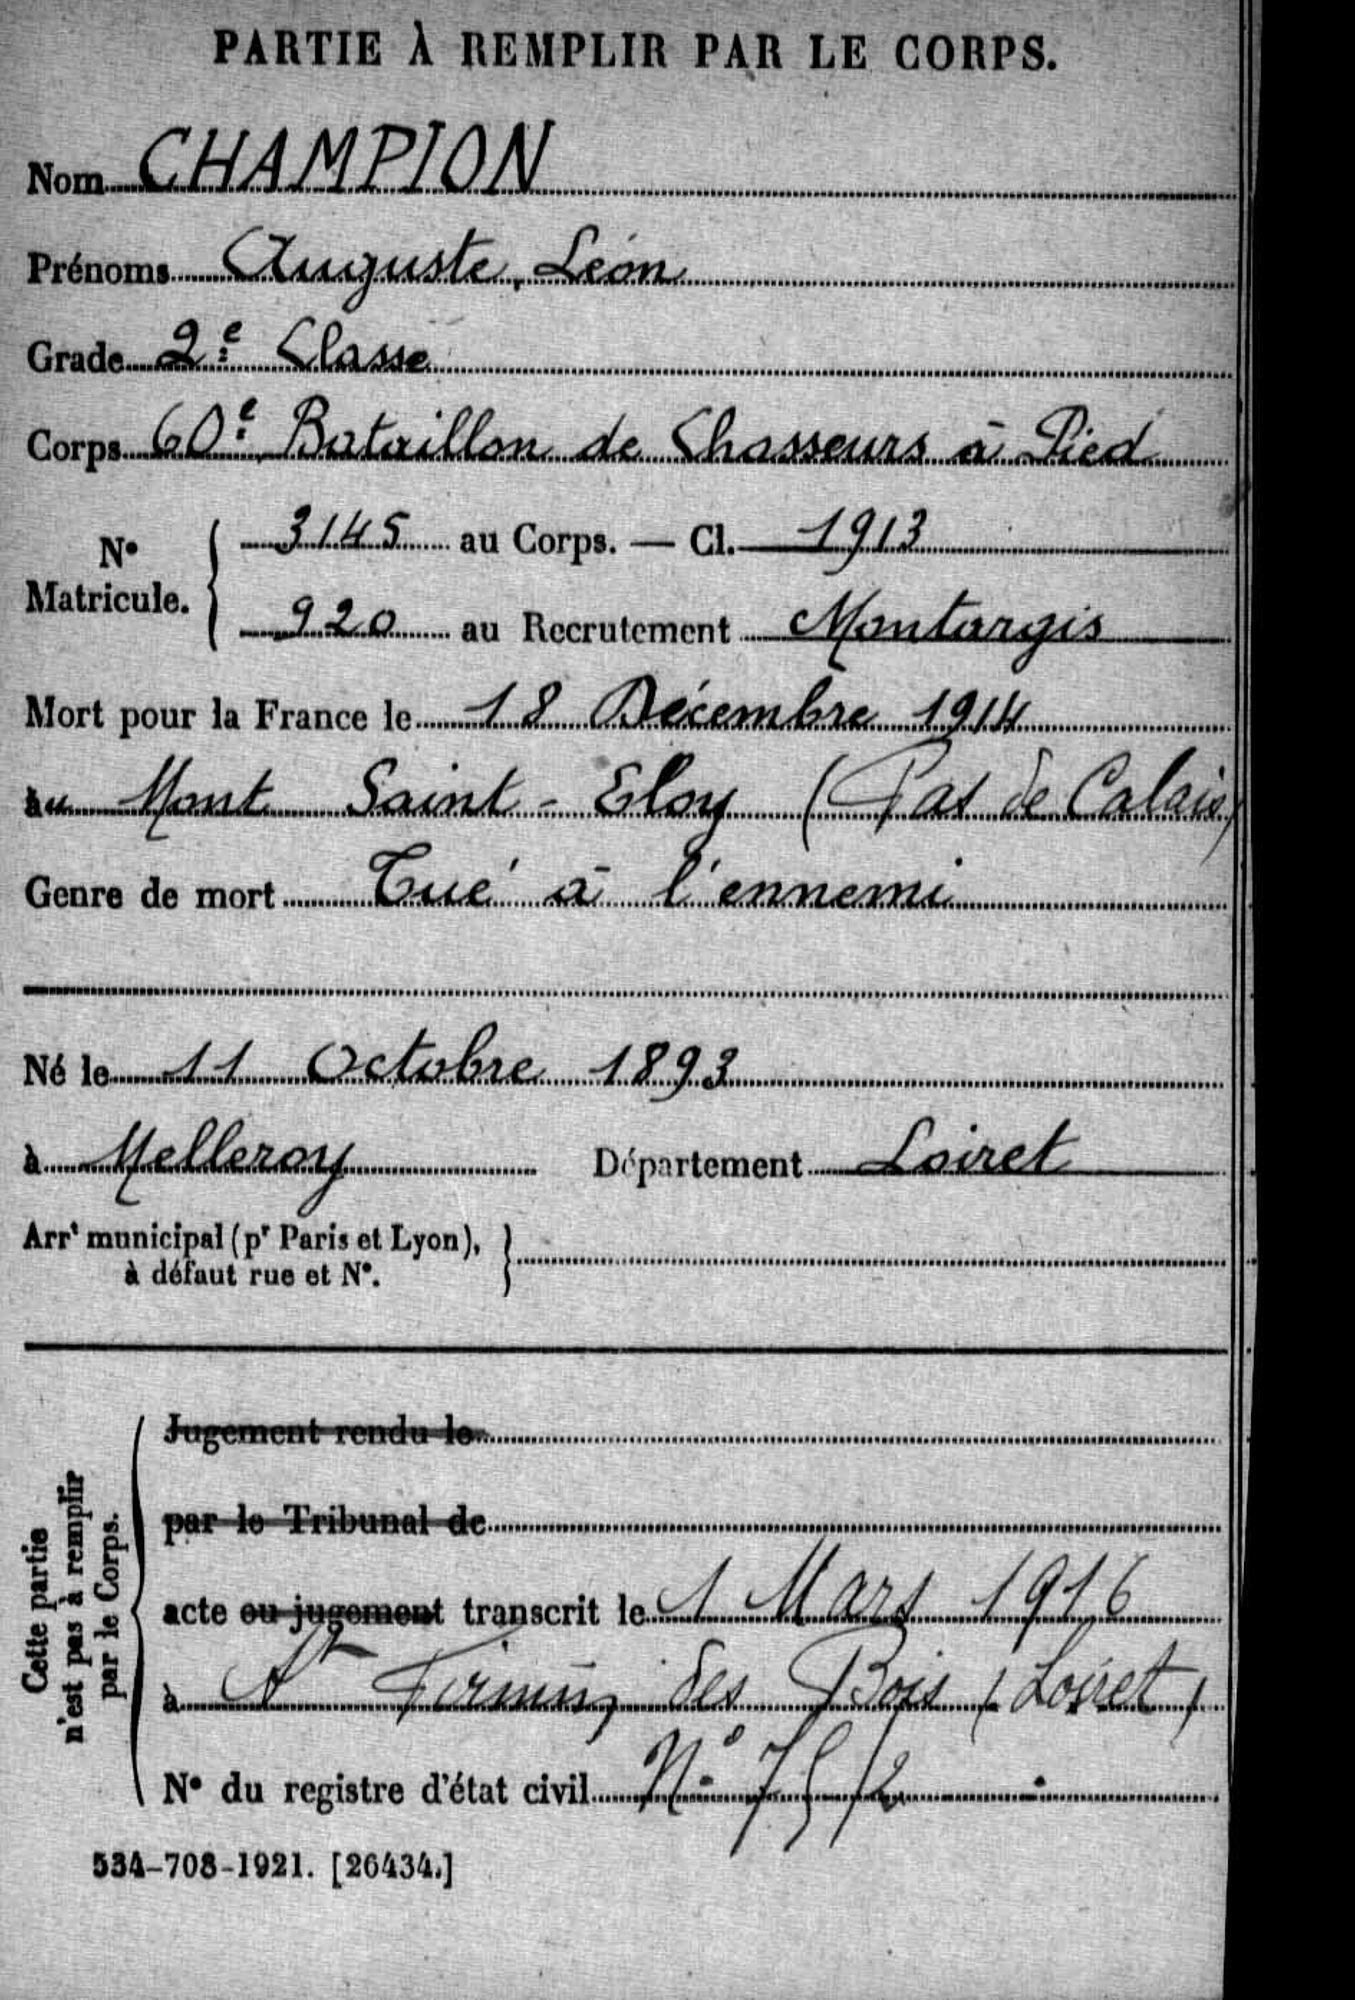 PARTIE À REMPLIR PAR LE CORPS.
Nom CHAMPION
Prénoms Auguste, Léon
Grade 2e Classe
Corps 60e Bataillon de Chasseurs à Pied
N° Matricule. { 3145 au Corps. — Cl. 1913
920 au Recrutement Montargis
Mort pour la France le 18 Décembre 1914
au Mont Saint-Eloy (Pas de Calais)
Genre de mort Tué à l'ennemi
Né le 11 Octobre 1893
à Melleroy Département Loiret
Arrt municipal (pr Paris et Lyon), }
à défaut rue et N°.
Cette partie
n'est pas à remplir
par le Corps.
Jugement rendu le
par le Tribunal de
acte ou jugement transcrit le 1 Mars 1916
à St Firmin des Bois (Loiret)
N° du registre d'état civil N°
534-708-1921. [26434.]